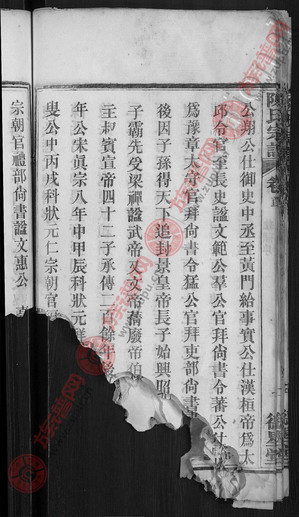 陳氏宗譜 卷首
公翔公仕御史中丞至黃門給事實公仕漢桓帝爲太
邱令官至長史謚文範公羣公官拜尚書令著公仕
爲豫章太守官拜尚書令猛公官拜吏部尚書
後因子孫得天下追封景皇帝長子始興昭
子霸先受梁禪謚武帝又文帝蒨廢帝伯
主叔寶宣帝四十二子承傳二百餘年
年公宋眞宗八年中甲辰科狀元
叟公中丙戌科狀元仁宗朝官
宗朝官禮部尚書謚文惠公
族譜網